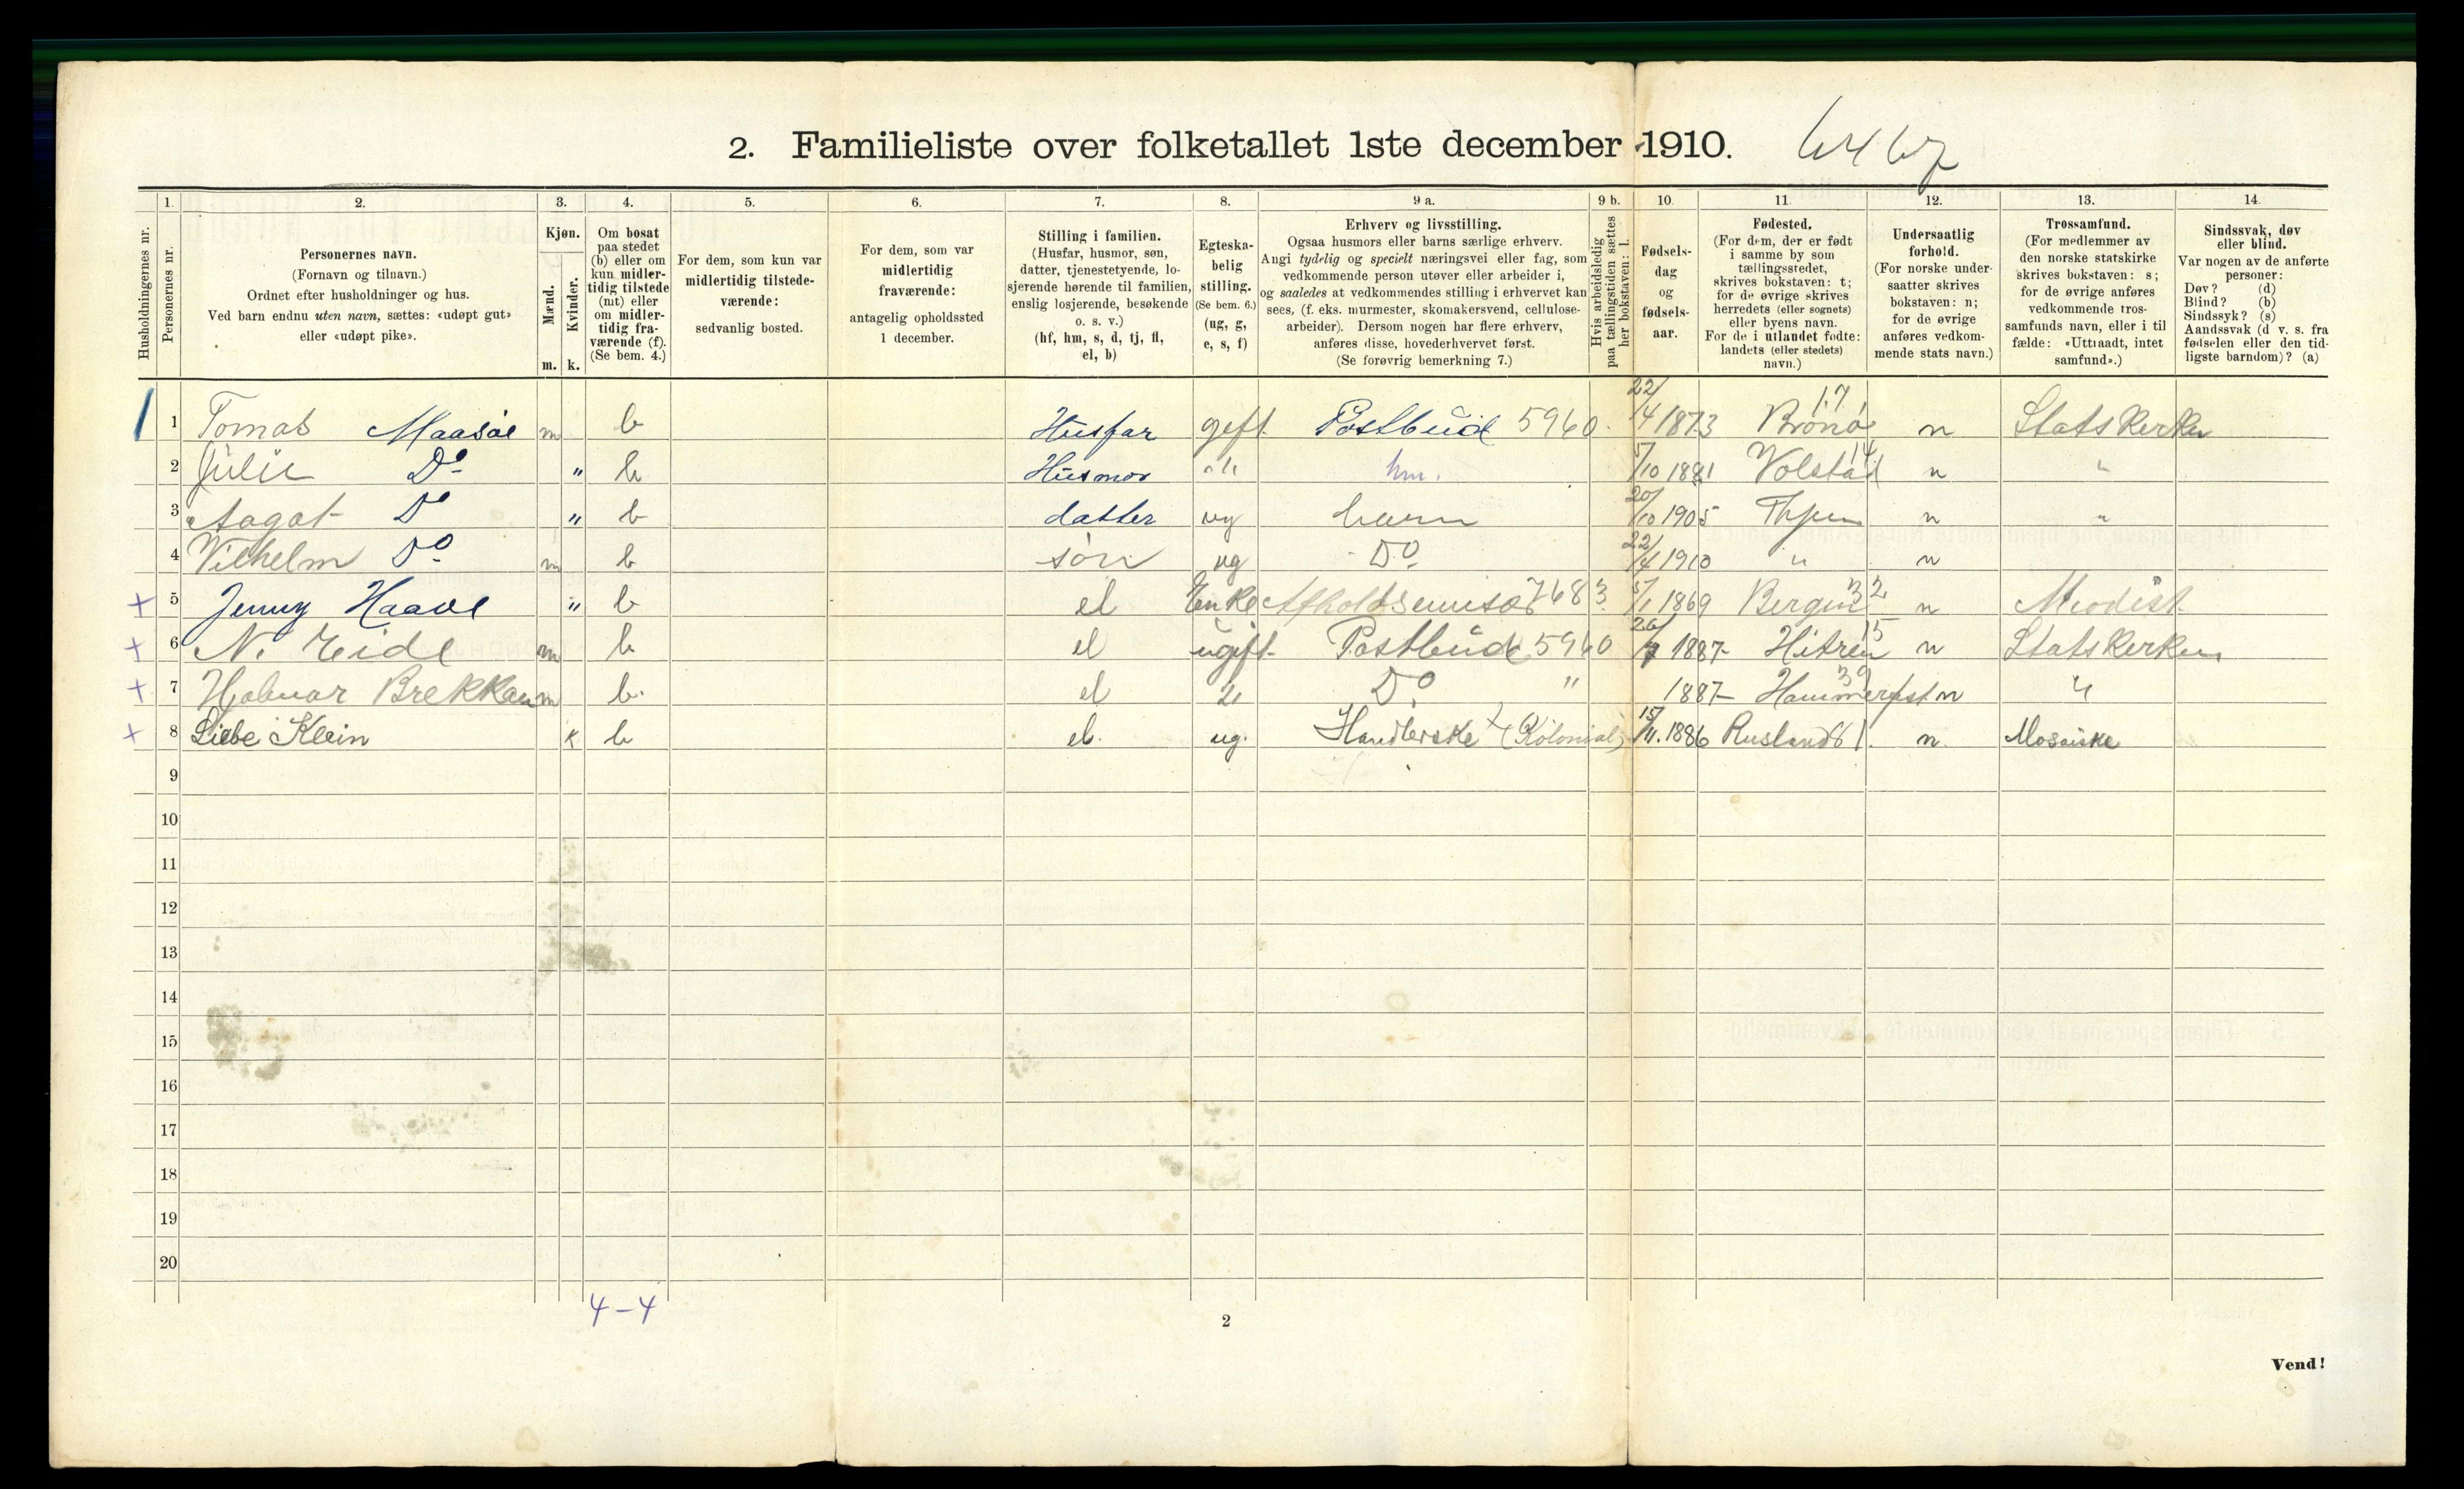 2. Familieliste over folketallet 1ste december 1910.
1. 2. 3. 4. 5. 6. 7. 8. 9 a. 9 b. 10. 11. 12. 13. 14.
Husholdningernes nr.
Personernes nr.
Personernes navn.
(Fornavn og tilnavn.)
Ordnet efter husholdninger og hus.
Ved barn endnu uten navn, sættes: «udøpt gut»
eller «udøpt pike».
Kjøn.
Mænd.
Kvinder.
m. k.
Om bosat
paa stedet
(b) eller om
kun midler-
tidig tilstede
(mt) eller
om midler-
tidig fra-
værende (f).
(Se bem. 4.)
For dem, som kun var
midlertidig tilstede-
værende:
sedvanlig bosted.
For dem, som var
midlertidig
fraværende:
antagelig opholdssted
1 december.
Stilling i familien.
(Husfar, husmor, søn,
datter, tjenestetyende, lo-
sjerende hørende til familien,
enslig losjerende, besøkende
o. s. v.)
(hf, hm, s, d, tj, fl,
el, b)
Egteska-
belig
stilling.
(Se bem. 6.)
(ug, g,
e, s, f)
Erhverv og livsstilling.
Ogsaa husmors eller barns særlige erhverv.
Angi tydelig og specielt næringsvei eller fag, som
vedkommende person utøver eller arbeider i,
og saaledes at vedkommendes stilling i erhvervet kan
sees, (f. eks. murmester, skomakersvend, cellulose-
arbeider). Dersom nogen har flere erhverv,
anføres disse, hovederhvervet først.
(Se forøvrig bemerkning 7.)
Hvis arbeidsledig
paa tællingstiden sættes
her bokstaven: l.
Fødsels-
dag
og
fødsels-
aar.
Fødested.
(For dem, der er født
i samme by som
tællingsstedet,
skrives bokstaven: t;
for de øvrige skrives
herredets (eller sognets)
eller byens navn.
For de i utlandet fødte:
landets (eller stedets)
navn.)
Undersaatlig
forhold.
(For norske under-
saatter skrives
bokstaven: n;
for de øvrige
anføres vedkom-
mende stats navn.)
Trossamfund.
(For medlemmer av
den norske statskirke
skrives bokstaven: s;
for de øvrige anføres
vedkommende tros-
samfunds navn, eller i til
fælde: «Uttraadt, intet
samfund».)
Sindssvak, døv
eller blind.
Var nogen av de anførte
personer:
Døv? (d)
Blind? (b)
Sindssyk? (s)
Aandssvak (d v. s. fra
fødselen eller den tid-
ligste barndom)? (a)
1 1 Tomas Maasøe m b Husfar gift Postbud 5960 22/4 1873 Brønø 17 n Statskerken
2 Julie Do " b Husmor " hm. 5/10 1881 Volstad 14 n "
3 Aagot Do " b datter ug barn 20/10 1905 Thjem n "
4 Vilhelm Do m b søn ug Do 22/4 1910 " n
+ 5 Jenny Haave " b el Enke Afholds 7683 5/1 1869 Bergen 32 n Meodist
+ 6 N. Eide m b el ugift Postbud 5960 26/7 1887 Hitren 15 n Statskerken
+ 7 Hjalmar Brekkan m b. el " Do " 1887 Hammerfest 39 n "
+ 8 Liebe Klein k b el. ug. Handlerske (Kolonial) 15/11. 1886 Rusland 61. n. Mosaiske
9
10
11
12
13
14
15
16
17
18
19
20
4 – 4
2
Vend!